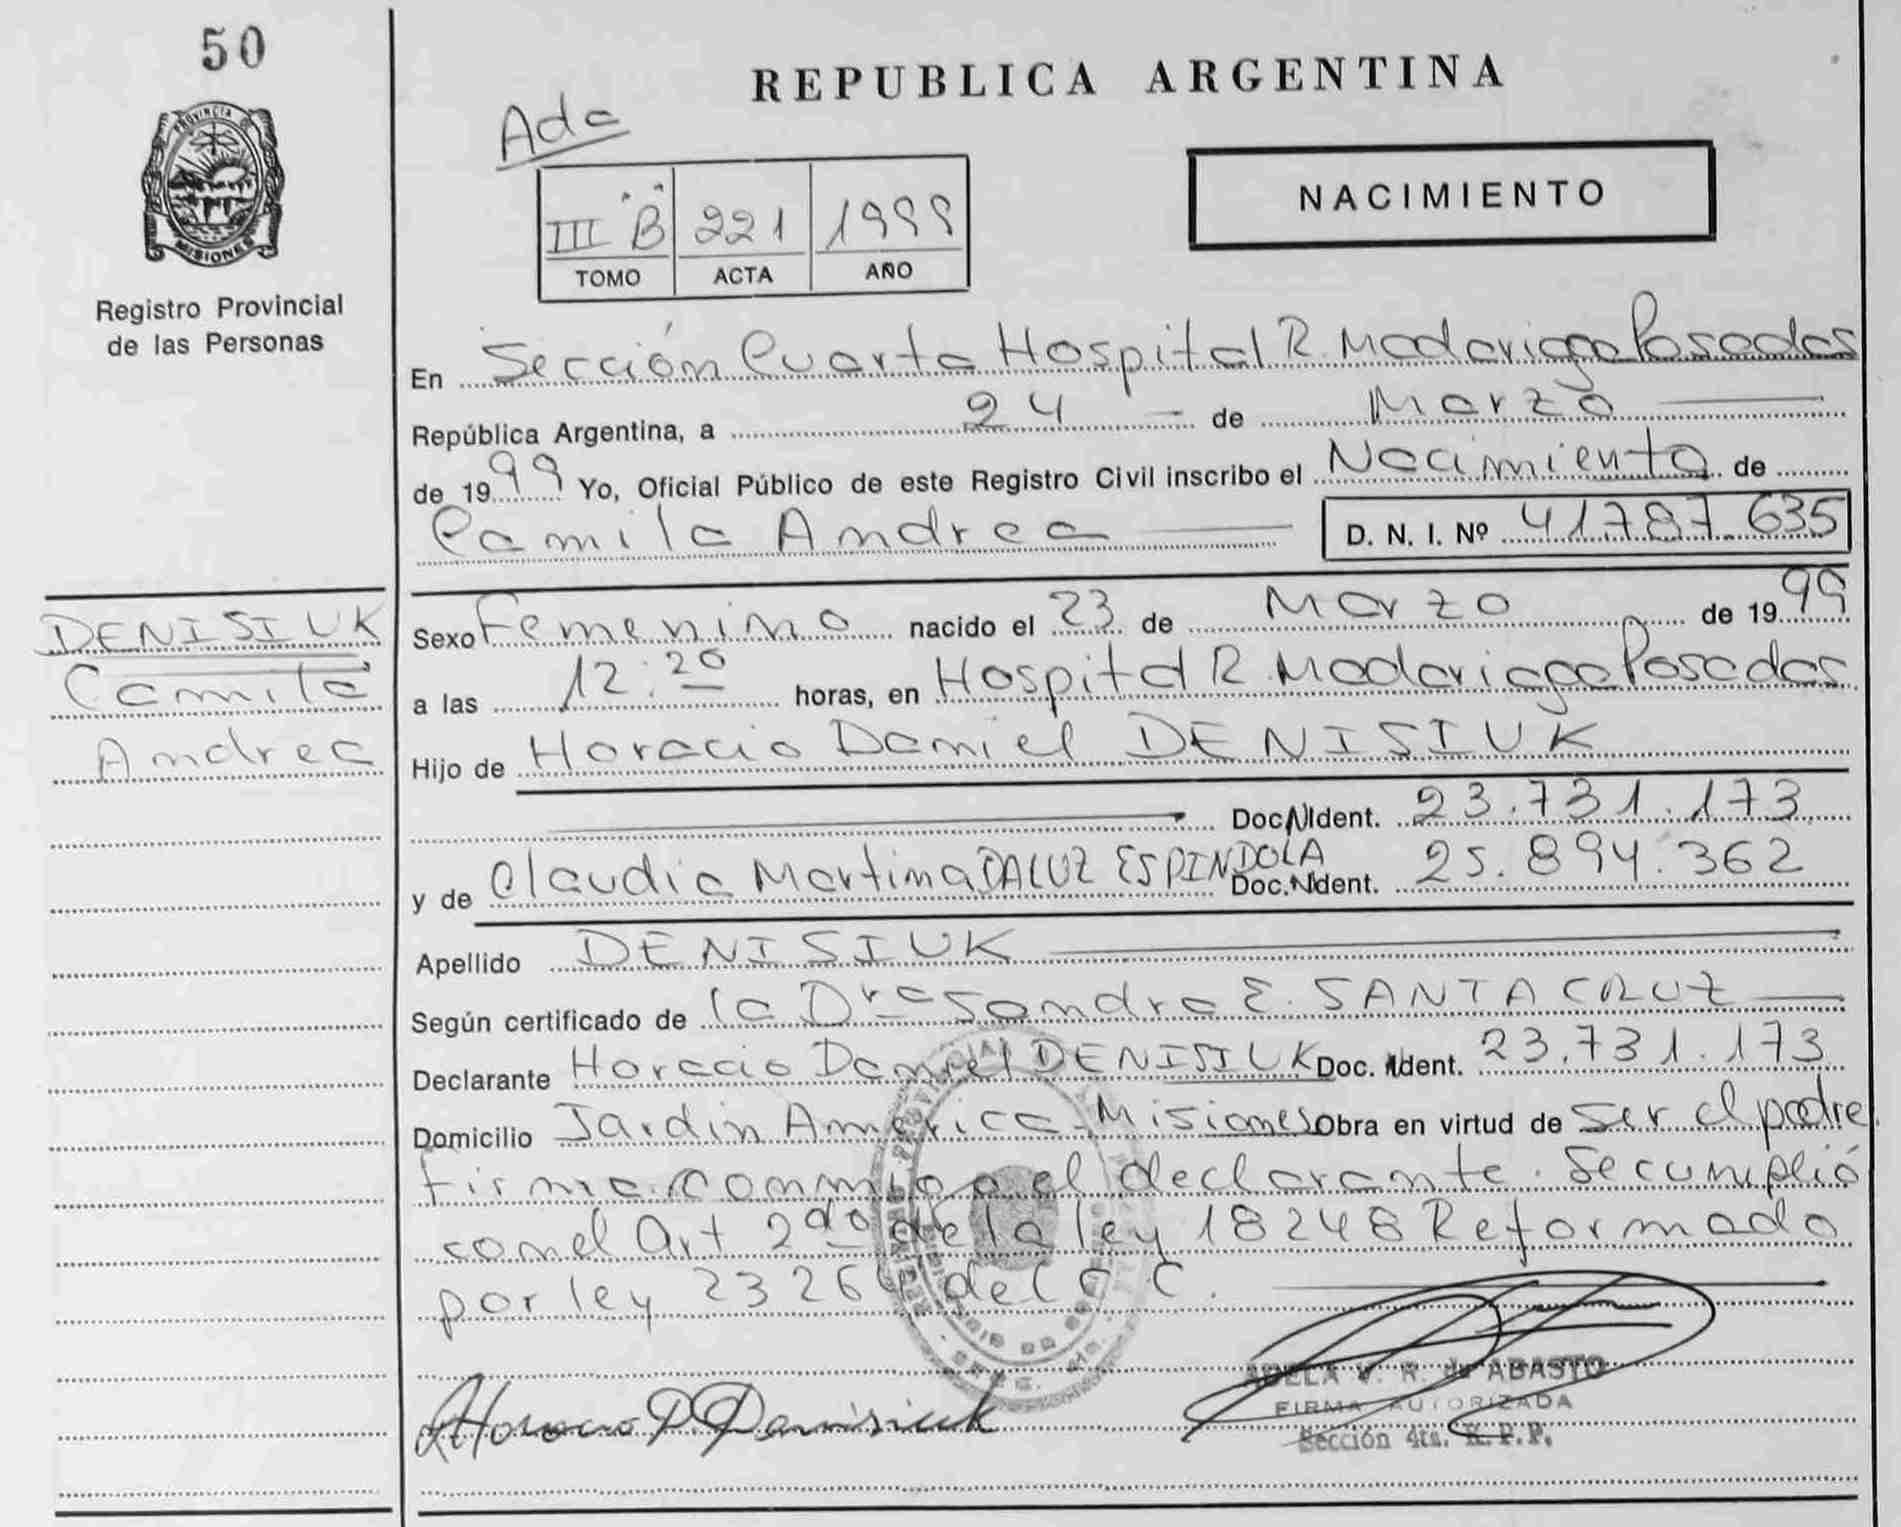 50
PROVINCIA DE
MISIONES
Registro Provincial
de las Personas
REPUBLICA ARGENTINA
Ada
III "B" 221 1999
TOMO ACTA AÑO
NACIMIENTO
En Sección Cuarta Hospital R. Madariaga Posadas
República Argentina, a 24 - de Marzo
de 1999 Yo, Oficial Público de este Registro Civil inscribo el Nacimiento de
Camila Andrea D. N. I. Nº 41.787.635
DENISIUK
Camila
Andrea
Sexo Femenino nacido el 23 de Marzo de 1999
a las 12:20 horas, en Hospital R. Madariaga Posadas
Hijo de Horacio Daniel DENISIUK
Doc.N.Ident. 23.731.173
y de Claudia Martina DALUZ ESPINDOLA Doc.N.Ident. 25.894.362
Apellido DENISIUK
Según certificado de la Dra Sandra E. SANTA CRUZ
Declarante Horacio Daniel DENISIUK Doc. Ident. 23.731.173
Domicilio Jardin América - Misiones Obra en virtud de ser el padre
firma conmigo el declarante. Se cumplió
con el Art 2do de la ley 18248 Reformado
por ley 23264 del C C.
Horacio D. Denisiuk
ADELA V. R. de ABASTO
FIRMA AUTORIZADA
Sección 4ta. R.P.P.